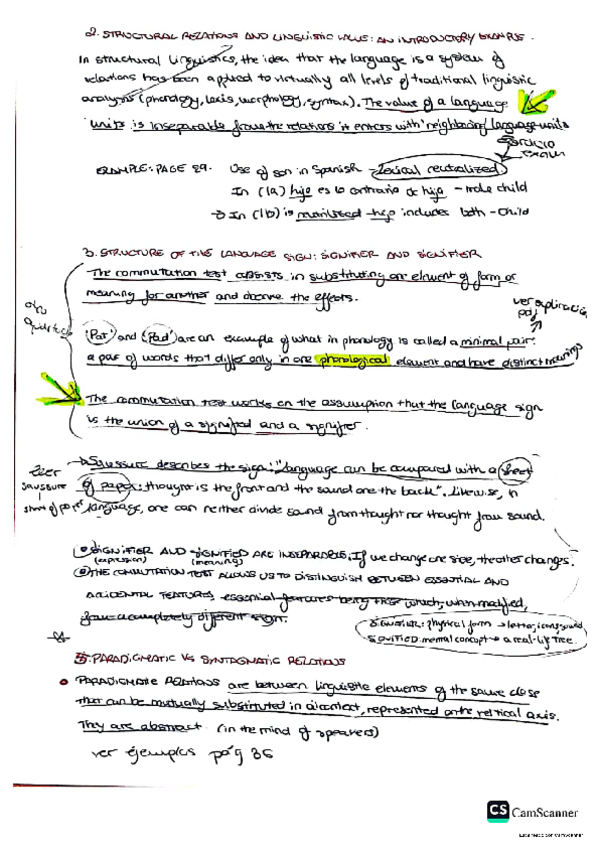 2. STRUCTURAL RELATIONS AND LINGUISTIC VALUE: AN INTRODUCTORY EXAMPLE.
In structural linguistics, the idea that the language is a system of
relations has been applied to virtually all levels of traditional linguistic
analysis (phonology, lexis, morphology, syntax). The value of a language
units is inseparable from the relations it enters with neighboring language units
EXAMPLE: PAGE 29. Use of son in Spanish - lexical neutralized.
In (1a) hijo es lo contrario de hija - male child
→ In (1b) is neutralized - hijo includes both - child
3. STRUCTURE OF THE LANGUAGE SIGN: SIGNIFIER AND SIGNIFIER
The commutation test consists in substituting one element of form or
meaning for another and observe the effects.
ver explicación
pág
'Pat' and 'Pad' are an example of what in phonology is called a minimal pair:
a pair of words that differ only in one phonological element and have distinct meanings
The commutation test works on the assumption that the language sign
is the union of a signified and a signifier.
Leer
saussure
sheet of paper
→ Saussure describes the sign: "language can be compared with a sheet
of paper: thought is the front and the sound one the back". Likewise, in
language, one can neither divide sound from thought nor thought from sound.
SIGNIFIER AND SIGNIFIED ARE INSEPARABLE. If we change one side, the other changes.
(expression) (meaning)
THE COMMUTATION TEST ALLOWS US TO DISTINGUISH BETWEEN ESSENTIAL AND
ACCIDENTAL FEATURES, essential features being those which, when modified,
form a completely different sign.
SIGNIFIER: physical form → letter, icons, sound
SIGNIFIED: mental concept → a real-life tree.
5. PARADIGMATIC VS SYNTAGMATIC RELATIONS
• PARADIGMATIC RELATIONS are between linguistic elements of the same class
that can be mutually substituted in a context, represented on the vertical axis.
They are abstract (in the mind of speakers)
ver ejemplos pág 36
CS CamScanner